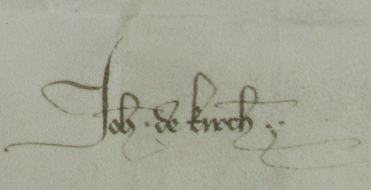 Joh · de kirch